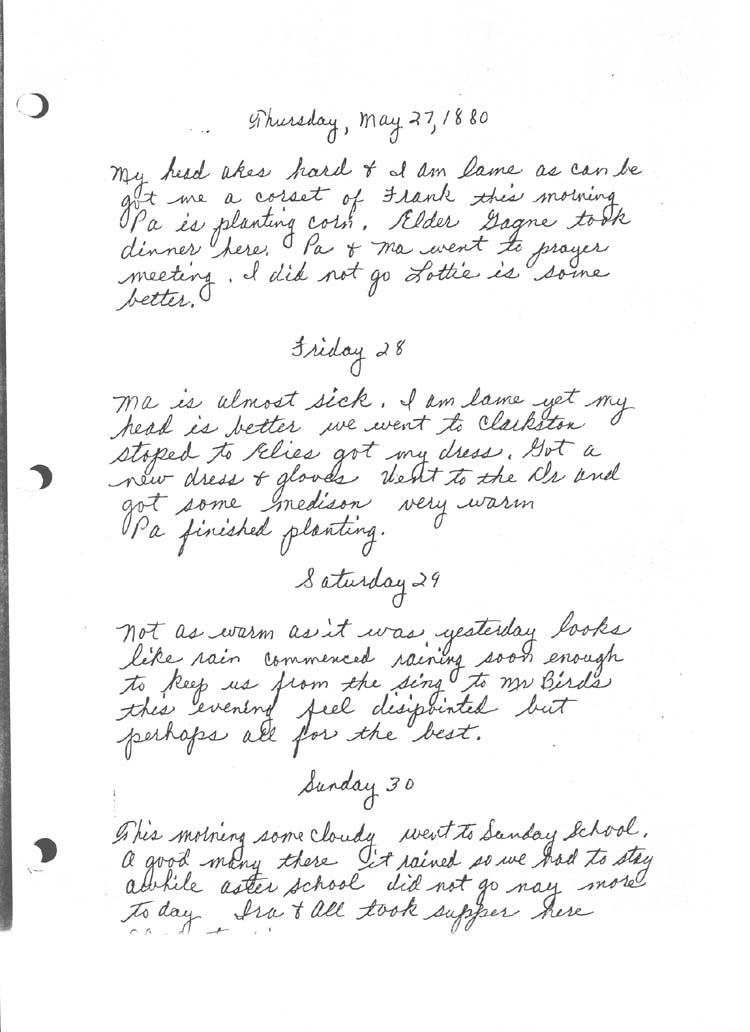 Thursday, May 27, 1880
My head akes hard & I am lame as can be
got me a corset of Frank this morning
Pa is planting corn. Elder Gagne took
dinner here. Pa & Ma went to prayer
meeting. I did not go Lottie is some
better.
Friday 28
Ma is almost sick. I am lame yet my
head is better we went to Clarkston
stoped to Elies got my dress. Got a
new dress & gloves Went to the Dr and
got some medison very warm
Pa finished planting.
Saturday 29
Not as warm as it was yesterday looks
like rain commenced raining soon enough
to keep us from the sing to Mr Birds
this evening feel disipointed but
perhaps all for the best.
Sunday 30
This morning some cloudy went to Sunday School.
A good many there it rained so we had to stay
awhile aster school did not go nay more
today Ira & All took supper here